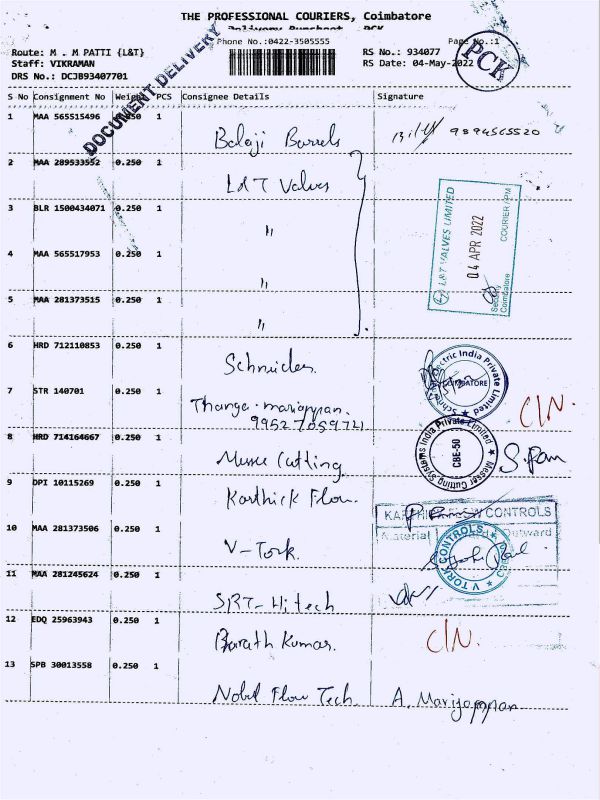 THE PROFESSIONAL COURIERS, Coimbatore
Delivery Runsheet - PCK
Phone No.:0422-3505555 Page No.:1
Route: M . M PATTI {L&T} RS No.: 934077
Staff: VIKRAMAN RS Date: 04-May-2022
DRS No.: DCJB93407701
PCK
DOCUMENT DELIVERY
S No Consignment No Weight PCS Consignee Details Signature
1 MAA 565515496 0.250 1 Balaji Barrels
2 MAA 289533552 0.250 1 L&T Valves
3 BLR 1500434071 0.250 1 "
4 MAA 565517953 0.250 1 "
5 MAA 281373515 0.250 1 "
L&T VALVES LIMITED
04 APR 2022
COURIER / PM
Security
Coimbatore
6 HRD 712110853 0.250 1 Schneider
Electric India Private Limited
COIMBATORE
7 STR 140701 0.250 1 Thanga mariappan
9952705972
CIN.
8 HRD 714164667 0.250 1 Messer Cutting
Messer Cutting Systems India Private Limited
CBE-50
S. Ram
9 DPI 10115269 0.250 1 Karthick Flow
CONTROLS
Material Outward
10 MAA 281373506 0.250 1 V-Tork
V TORK CONTROLS
11 MAA 281245624 0.250 1 SRT-Hitech
12 EDQ 25963943 0.250 1 Barath Kumar. CIN.
13 SPB 30013558 0.250 1 Nobel Flow Tech A. Mariyappan